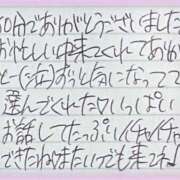 60分でありがとうございました
お忙しい中来てくれてありが
と〜(泣)ずっと気になってて
選んでくれたり いっぱい
お話してたっぷりイチャイチャ
できたねまたいつでも来てね♪